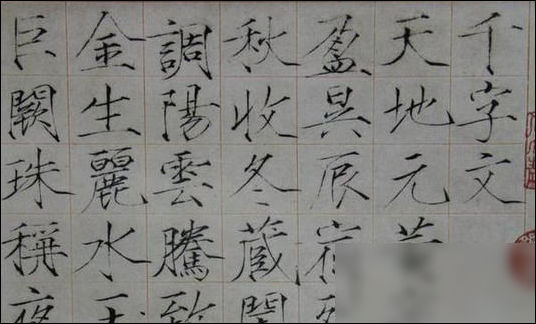 千字文
天地元
盈昃辰宿
秋收冬藏閏
調陽雲騰致
金生麗水玉
巨闕珠稱夜